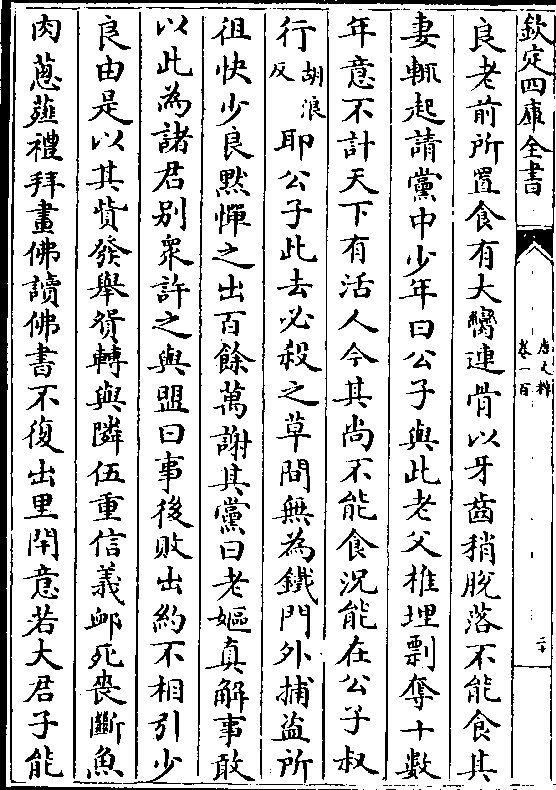 欽定四庫全書
唐文粹
卷一百
二十
良老前所置食有大臠連骨以牙齒稍脫落不能食其
妻輒起請黨中少年曰公子與此老父椎埋剽奪十數
年意不計天下有活人今其尚不能食況能在公子叔
行胡浪反耶公子此去必殺之草間無為鐵門外捕盜所
徂快少良黙憚之出百餘萬謝其黨曰老嫗真解事敢
以此為諸君别衆許之與盟曰事後敗出約不相引少
良由是以其貲發舉貿轉與隣伍重信義䘏死喪斷魚
肉葱薤禮拜畫佛讀佛書不復出里閈意若大君子能